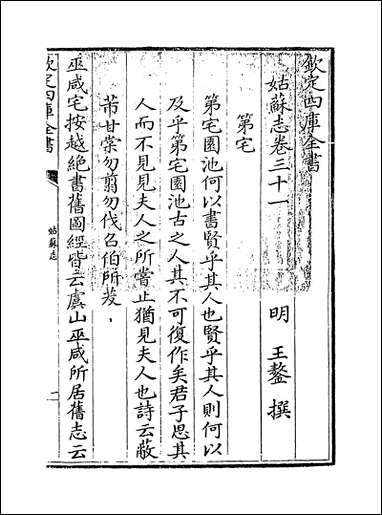 欽定四庫全書
姑蘇志卷三十一
明 王鏊 撰
第宅
第宅園池何以書賢乎其人也賢乎其人則何以
及乎第宅園池古之人其不可復作矣君子思其
人而不見見夫人之所嘗止猶見夫人也詩云蔽
芾甘棠勿翦勿伐召伯所茇
巫咸宅按越絶書舊圖經皆云虞山巫咸所居舊志云
欽定四庫全書
姑蘇志